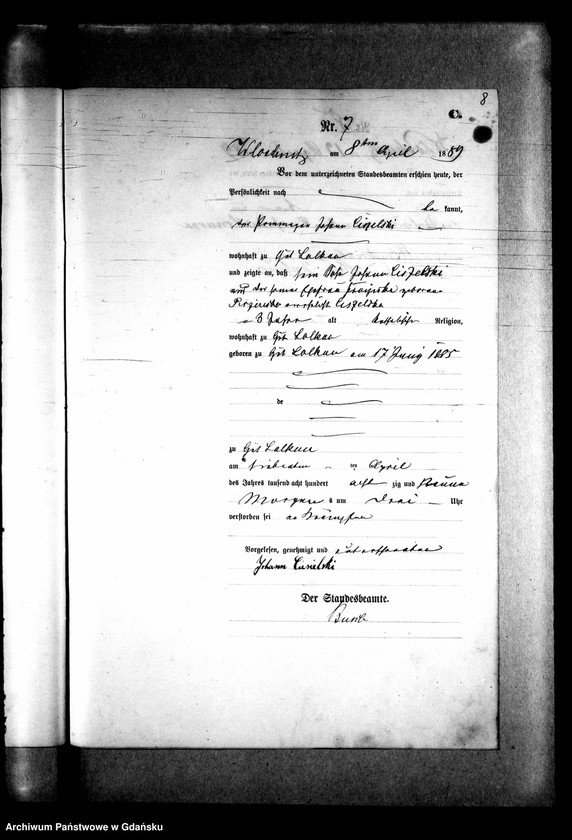 8
C.
Nr. 7
am 8ten April 1889
Vor dem unterzeichneten Standesbeamten erschien heute, der
Persönlichkeit nach
be kannt,
der Johann Cißelski
wohnhaft zu Gut Lalkau
und zeigte an, daß sein Sohn Johann Cißelski
geborene
3 Jahre alt katholischer Religion,
wohnhaft zu Gut Lalkau
geboren zu Gut Lalkau am 17 Juny 1885
de
zu Gut Lalkau
am siebenten ten April
des Jahres tausend acht hundert acht zig und neun
Morgens um drei Uhr
verstorben sei an Krämpfen
Vorgelesen, genehmigt und unterschrieben
Johann
Der Standesbeamte.
Archiwum Państwowe w Gdańsku